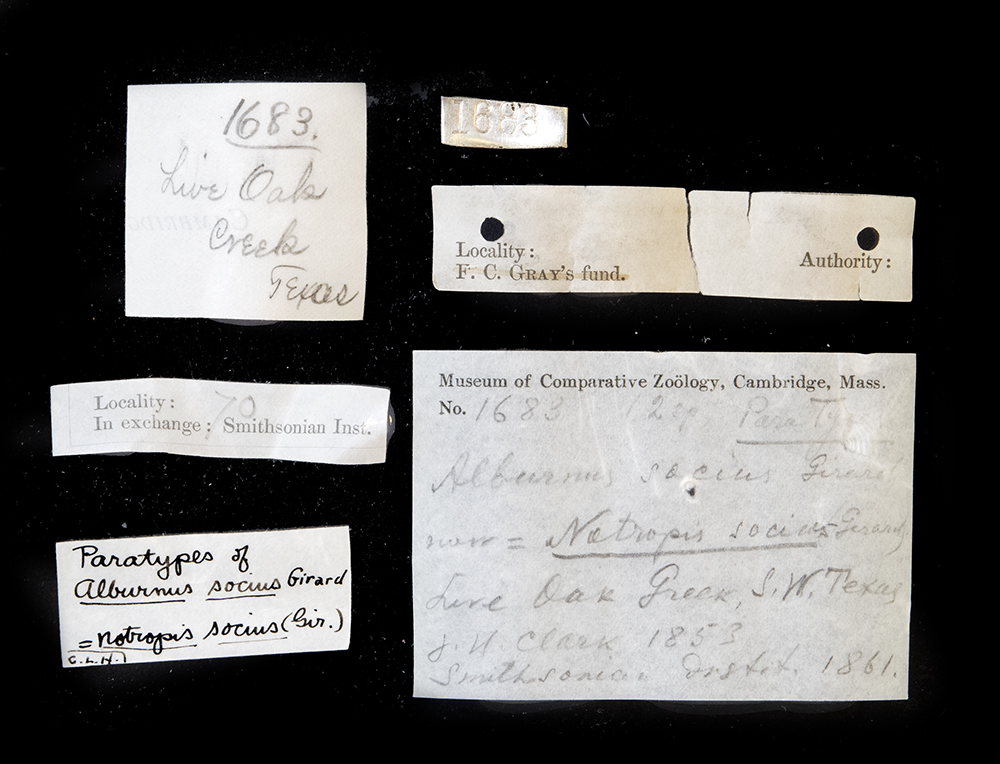 1683.
Live Oak
Creek
Texas
1683
Locality:
F. C. GRAY'S fund.
Authority:
Locality: 70
In exchange: Smithsonian Inst.
Museum of Comparative Zoölogy, Cambridge, Mass.
No. 1683 Para Ty
Alburnus socius Girard
now = Notropis socius (Girard)
Live Oak Creek, S.W. Texas
J. H. Clark 1853
Smithsonian Instit. 1861.
Paratypes of
Alburnus socius Girard
= Notropis socius (Gir.)
C.L.H.)